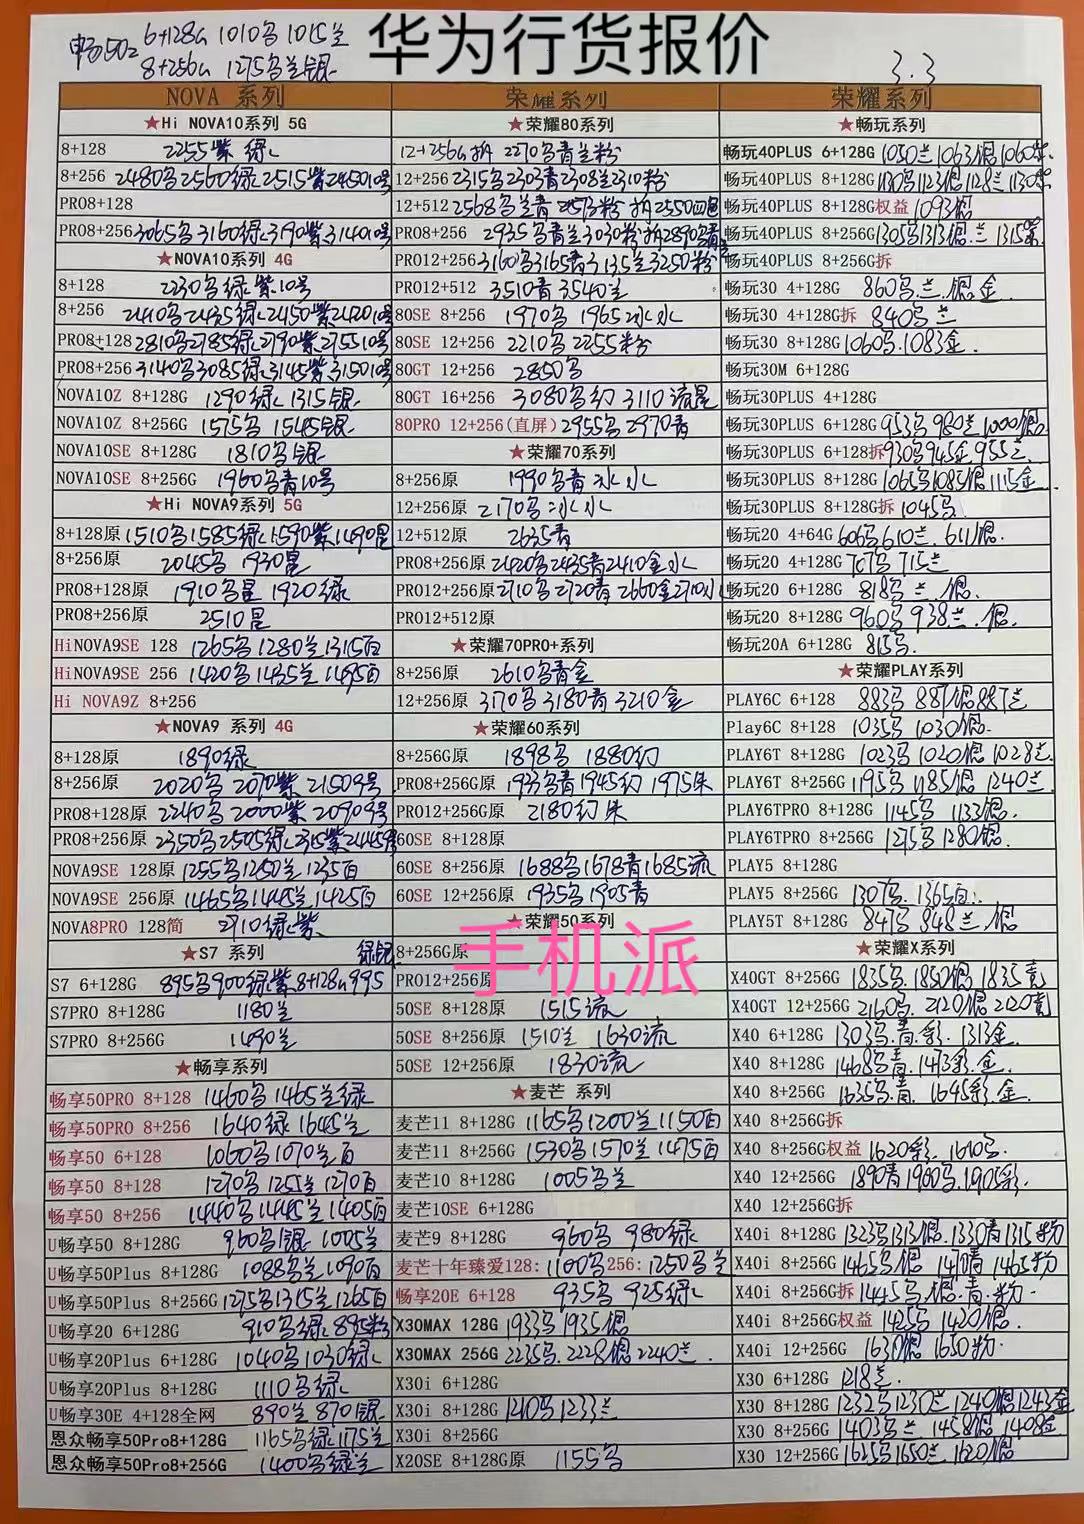 华为行货报价
畅50z 6+128G 1010乌 1015兰
8+256G 1275乌兰银
3.3
NOVA 系列
★Hi NOVA10系列 5G
8+128 2255紫 绿
8+256 2480乌2560绿2515紫245010号
PRO8+128
PRO8+256 3065乌3160绿3190紫314010号
★NOVA10系列 4G
8+128 2230乌绿紫.10号
8+256 2410乌2435绿2450紫242010号
PRO8+128 2810乌2785绿2790紫275510号
PRO8+256 3140乌3085绿3145紫315010号
NOVA10Z 8+128G 1290绿 1315银
NOVA10Z 8+256G 1575乌 1545银
NOVA10SE 8+128G 1810乌银
NOVA10SE 8+256G 1960乌青10号
★Hi NOVA9系列 5G
8+128原 1510乌1585绿1590紫1490星
8+256原 2045乌 1930星
PRO8+128原 1910乌星 1920绿
PRO8+256原 2510星
HiNOVA9SE 128 1265乌1280兰1315白
HiNOVA9SE 256 1420乌1435兰1495白
Hi NOVA9Z 8+256
★NOVA9 系列 4G
8+128原 1890绿
8+256原 2020乌 2070紫 21509号
PRO8+128原 2240乌 2000紫 20909号
PRO8+256原 2350乌2505绿2315紫24459号
NOVA9SE 128原 1255乌1250兰1235白
NOVA9SE 256原 1465乌1445兰1425白
NOVA8PRO 128简 2710绿紫
★S7 系列
S7 6+128G 895乌900绿紫8+128G995绿银
S7PRO 8+128G 1180兰
S7PRO 8+256G 1490兰
★畅享系列
畅享50PRO 8+128 1460乌1465兰绿
畅享50PRO 8+256 1640绿 1645兰
畅享50 6+128 1060乌1070兰白
畅享50 8+128 1270乌1255兰1270白
畅享50 8+256 1440乌1445兰1405白
U畅享50 8+128G 960乌银 1005兰
U畅享50Plus 8+128G 1088乌兰1090白
U畅享50Plus 8+256G 1275乌1315兰1265白
U畅享20 6+128G 910乌绿 895粉
U畅享20Plus 6+128G 1040乌1030绿
U畅享20Plus 8+128G 1110乌绿
U畅享30E 4+128全网 890兰 870银
恩众畅享50Pro8+128G 1165乌绿1175兰
恩众畅享50Pro8+256G 1400乌绿兰
荣耀系列
★荣耀80系列
12+256G拆 2270乌青兰粉
12+256 2315乌2303青2308兰2310粉
12+512 2568乌兰青 2573粉 拆2550四色
PRO8+256 2935乌青兰3030粉拆2890乌青
PRO12+256 3160乌3165青3135兰3250粉
PRO12+512 3510青 3540兰
80SE 8+256 1970乌 1965冰水
80SE 12+256 2210乌 2255粉
80GT 12+256 2850乌
80GT 16+256 3080乌幻 3110流星
80PRO 12+256(直屏) 2955乌 2970青
★荣耀70系列
8+256原 1990乌青冰水
12+256原 2170乌冰水
12+512原 2635青
PRO8+256原 2420乌2435青2410金水
PRO12+256原 2710乌2720青2660金2710水
PRO12+512原
★荣耀70PRO+系列
8+256原 2610乌青金
12+256原 3170乌 3180青 3210金
★荣耀60系列
8+256G原 1898乌 1880幻
PRO8+256G原 1933乌青1945幻 1975朱
PRO12+256G原 2180幻 朱
60SE 8+128原
60SE 8+256原 1688乌1678青1685流
60SE 12+256原 1935乌1905青
★荣耀50系列
手机派
8+256G原
PRO12+256原
50SE 8+128原 1515流
50SE 8+256原 1510兰 1630流
50SE 12+256原 1830流
★麦芒 系列
麦芒11 8+128G 1165乌1200兰1150白
麦芒11 8+256G 1530乌1570兰1475白
麦芒10 8+128G 1005乌兰
麦芒10SE 6+128G
麦芒9 8+128G 960乌 980绿
麦芒十年臻爱128:1100乌256:1250乌兰
畅享20E 6+128 935乌 925绿
X30MAX 128G 1933乌1935银
X30MAX 256G 2235乌.2228银2240兰.
X30i 6+128G
X30i 8+128G 1210乌1233兰
X30i 8+256G
X20SE 8+128G原 1155乌
荣耀系列
★畅玩系列
畅玩40PLUS 6+128G 1050兰1063银1060紫.
畅玩40PLUS 8+128G 1130乌1123银1128兰1130紫
畅玩40PLUS 8+128G权益 1093银
畅玩40PLUS 8+256G 1305乌1313银.兰1315紫.
畅玩40PLUS 8+256G拆
畅玩30 4+128G 860乌.兰.银金.
畅玩30 4+128G拆 840乌兰
畅玩30 8+128G 1060乌.1083金.
畅玩30M 6+128G
畅玩30PLUS 4+128G
畅玩30PLUS 6+128G 953乌980兰1000银
畅玩30PLUS 6+128拆 930乌945金955兰.
畅玩30PLUS 8+128G 1065乌1085银1115金.
畅玩30PLUS 8+128G拆 1045乌
畅玩20 4+64G 606乌610兰.611银.
畅玩20 4+128G 707乌 715兰
畅玩20 6+128G 818乌 兰.银.
畅玩20 8+128G 960乌 938兰.银.
畅玩20A 6+128G 815乌.
★荣耀PLAY系列
PLAY6C 6+128 883乌 887银887兰
Play6C 8+128 1035乌 1030银.
PLAY6T 8+128G 1023乌1020银1028兰.
PLAY6T 8+256G 1195乌1185银 1240兰.
PLAY6TPRO 8+128G 1145乌 1133银.
PLAY6TPRO 8+256G 1275乌1280银.
PLAY5 8+128G
PLAY5 8+256G 1307乌. 1365白.
PLAY5T 8+128G 847乌 848兰.银
★荣耀X系列
X40GT 8+256G 1835乌.1850银1835竞
X40GT 12+256G 2160乌. 2120银2120竞
X40 6+128G 1303乌.青.彩. 1313金.
X40 8+128G 1468乌青.1473彩.金.
X40 8+256G 1635乌.青. 1645彩.金.
X40 8+256G拆
X40 8+256G权益 1620彩. 1610乌.
X40 12+256G 1890青1960乌.1905彩.
X40 12+256G拆
X40i 8+128G 1323乌1315银.1330青1315粉
X40i 8+256G 1465乌银 1470青1465粉
X40i 8+256G拆 1445乌.银.青.粉.
X40i 8+256G权益 1425乌 1420银.
X40i 12+256G 1630银1650粉.
X30 6+128G 1218兰.
X30 8+128G 1232乌1230兰1240银1243金
X30 8+256G 1403乌兰 1458银1408金
X30 12+256G 1625乌1650兰1620银